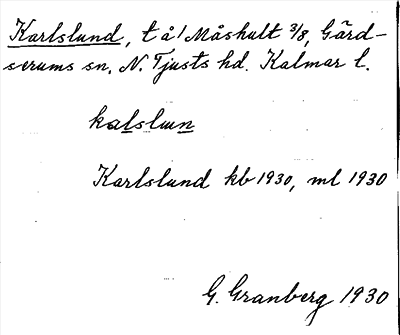 Karlslund, t å / Måshult 3/8, Gärd-
serums sn, N. Tjusts hd. Kalmar l.
kalslun
Karlslund kb 1930, ml 1930
G. Granberg 1930